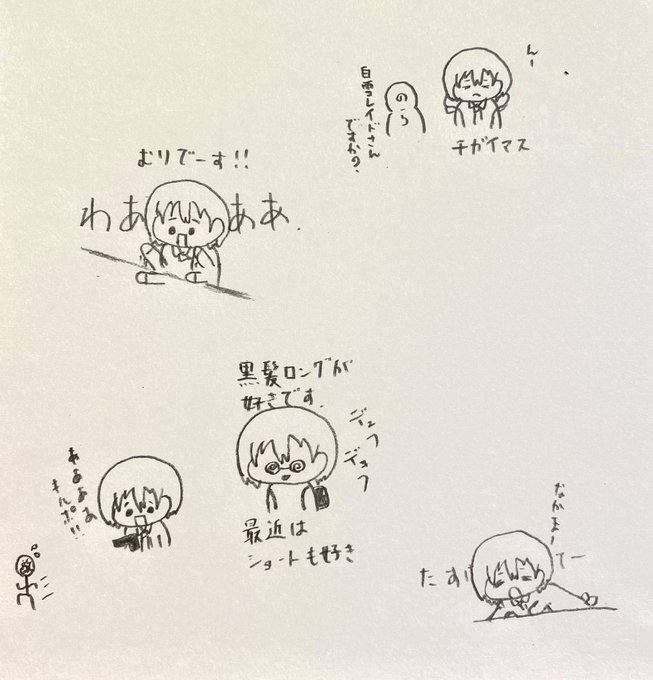 んー
白雪レイドさん
ですか?
のら
チガイマス
むりでーす!!
わあああ.
黒髪ロングが
好きです.
デュフ
デュフ
最近は
ショートも好き
ああああ
キルポ!!
なかまー
たすけてー